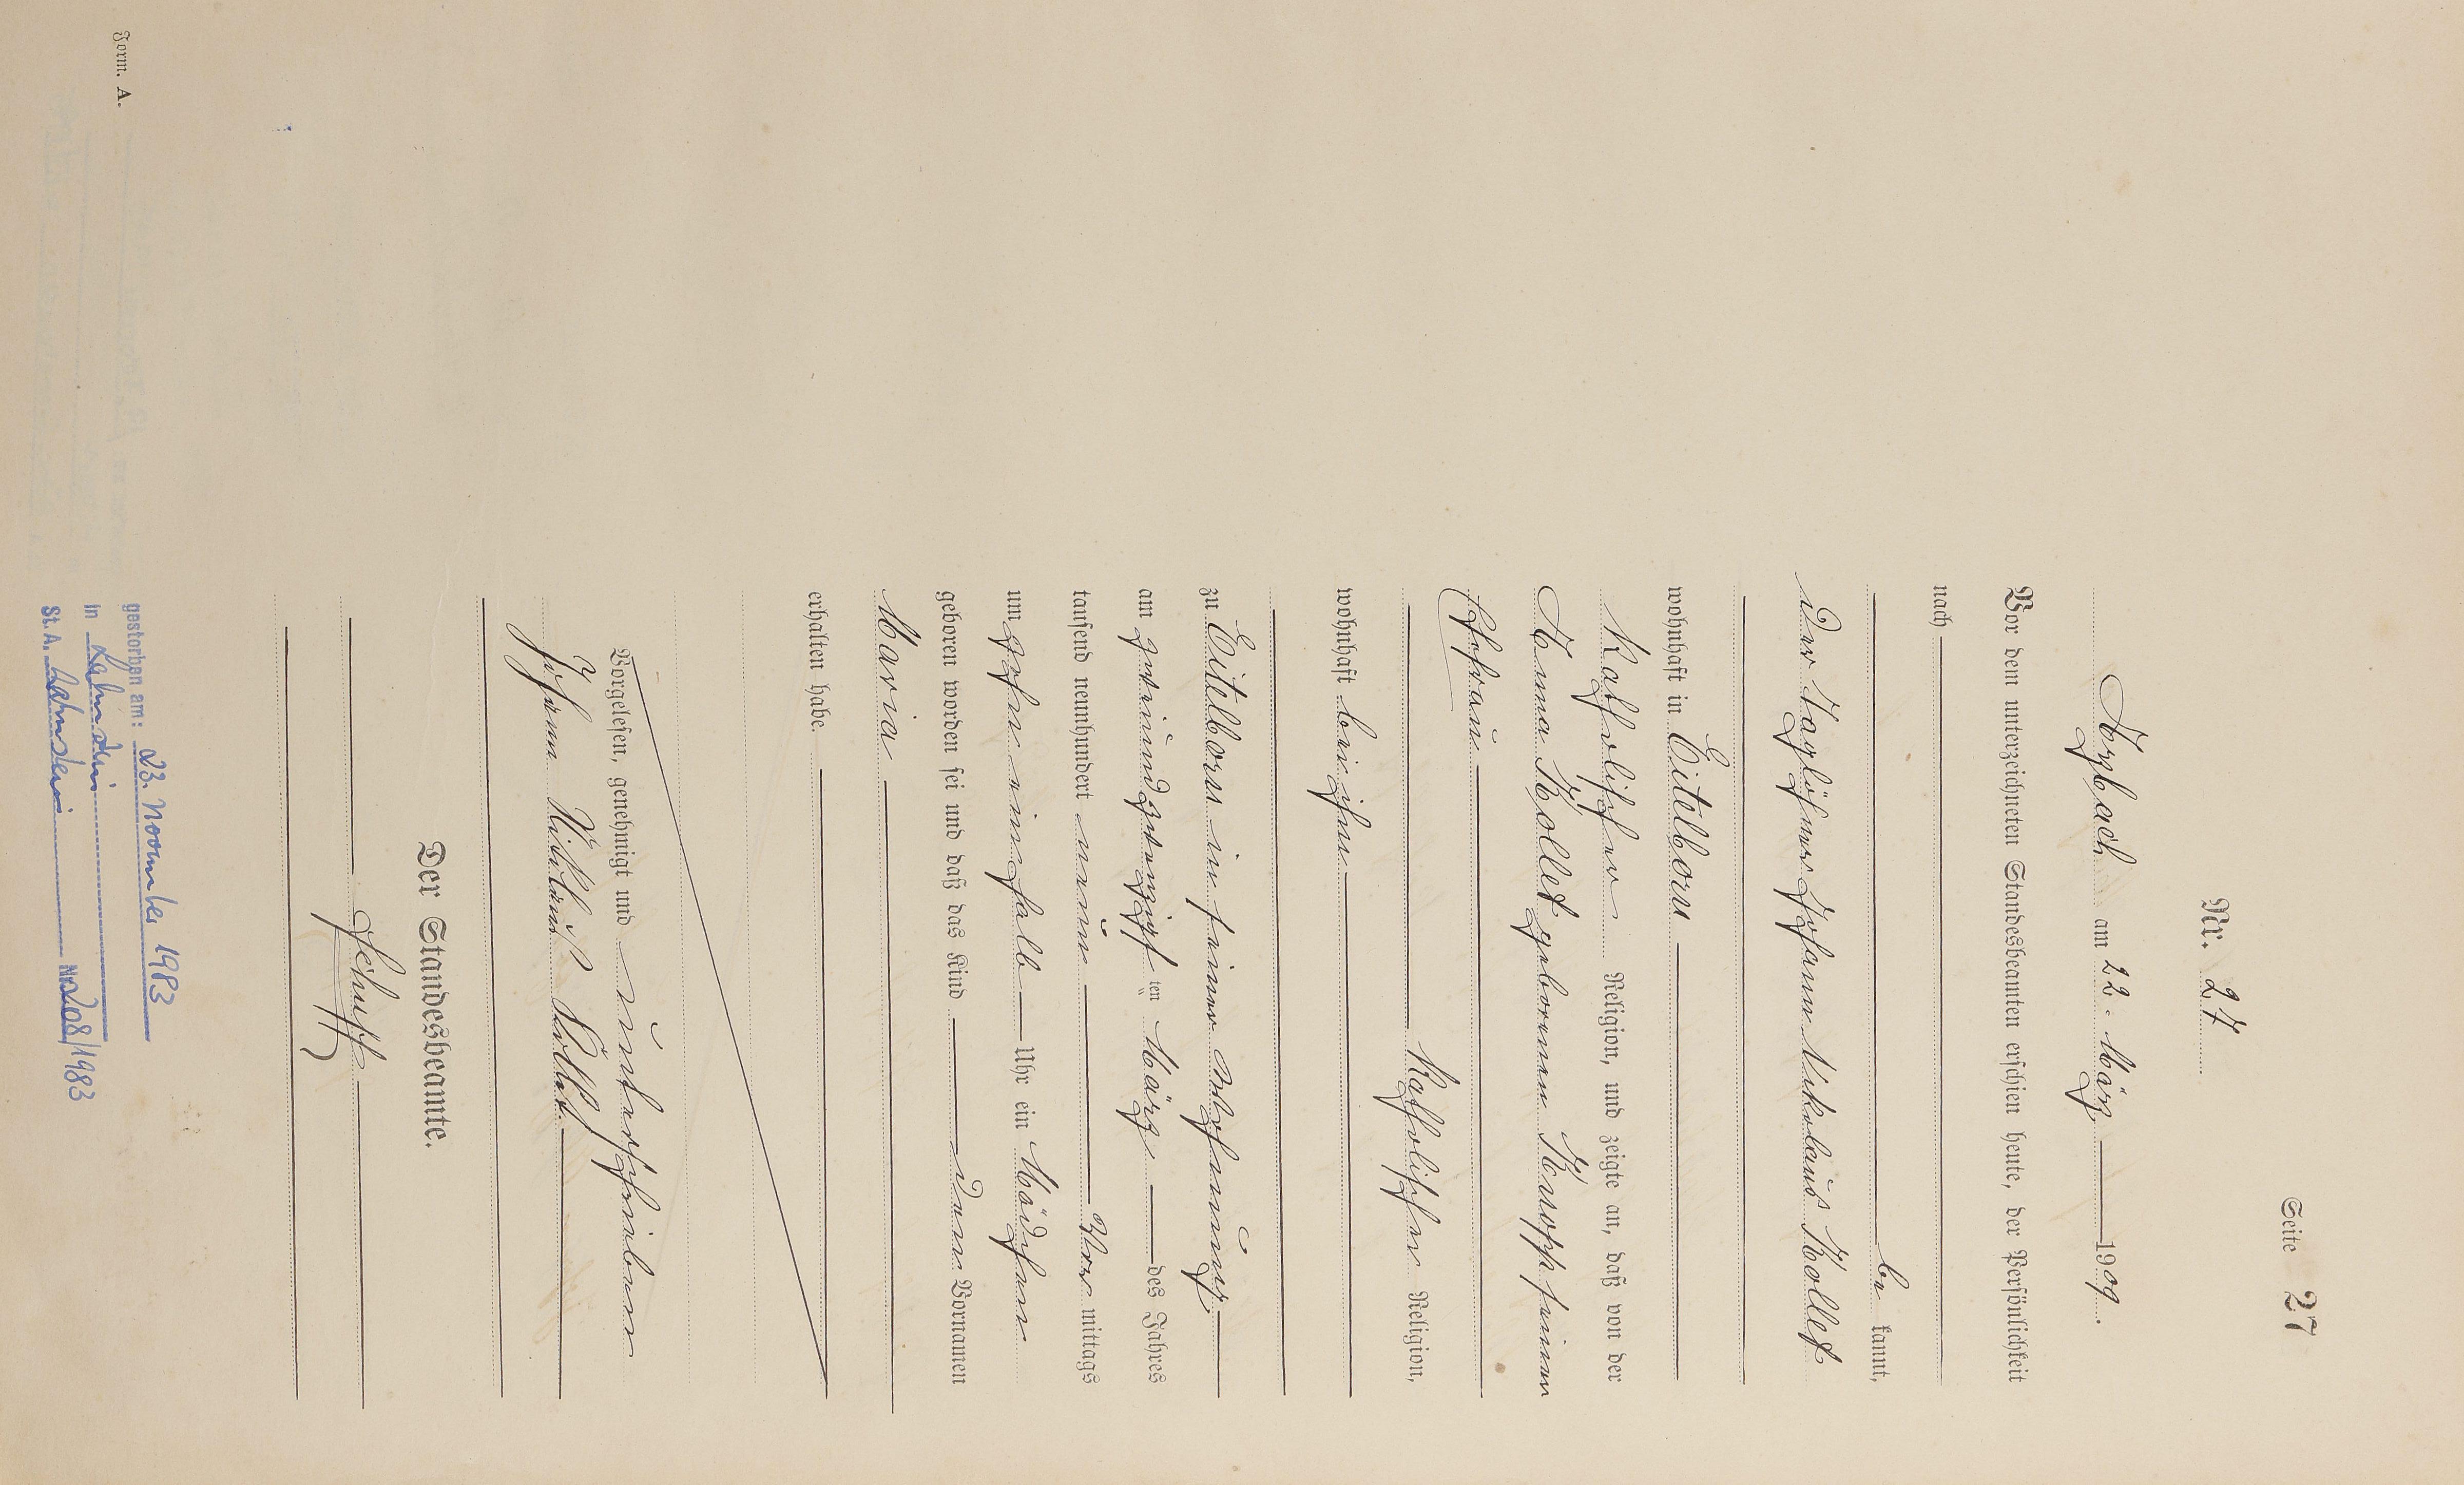 Seite 27
Nr. 27
Arzbach am 22. März 1909.
Vor dem unterzeichneten Standesbeamten erschien heute, der Persönlichkeit
nach
be kannt,
der Taglöhner Johann Nikolaus Kollet
wohnhaft in Eitelborn
katholischer Religion, und zeigte an, daß von der
Anna Kollet geborenen Knopp seiner
Ehefrau
katholischer Religion,
wohnhaft bei ihm
zu Eitelborn in seiner Wohnung,
am zweiundzwanzigsten März des Jahres
tausend neunhundert neun Vor mittags
um zehn einhalb Uhr ein Mädchen
geboren worden sei und daß das Kind den Vornamen
Maria
erhalten habe.
Vorgelesen, genehmigt und unterschrieben
Johann Nikolaus Kollet.
Der Standesbeamte.
Schupp
gestorben am: 23. November 1983
in Lahnstein
St. A. Lahnstein Nr. 208/1983
Form. A.